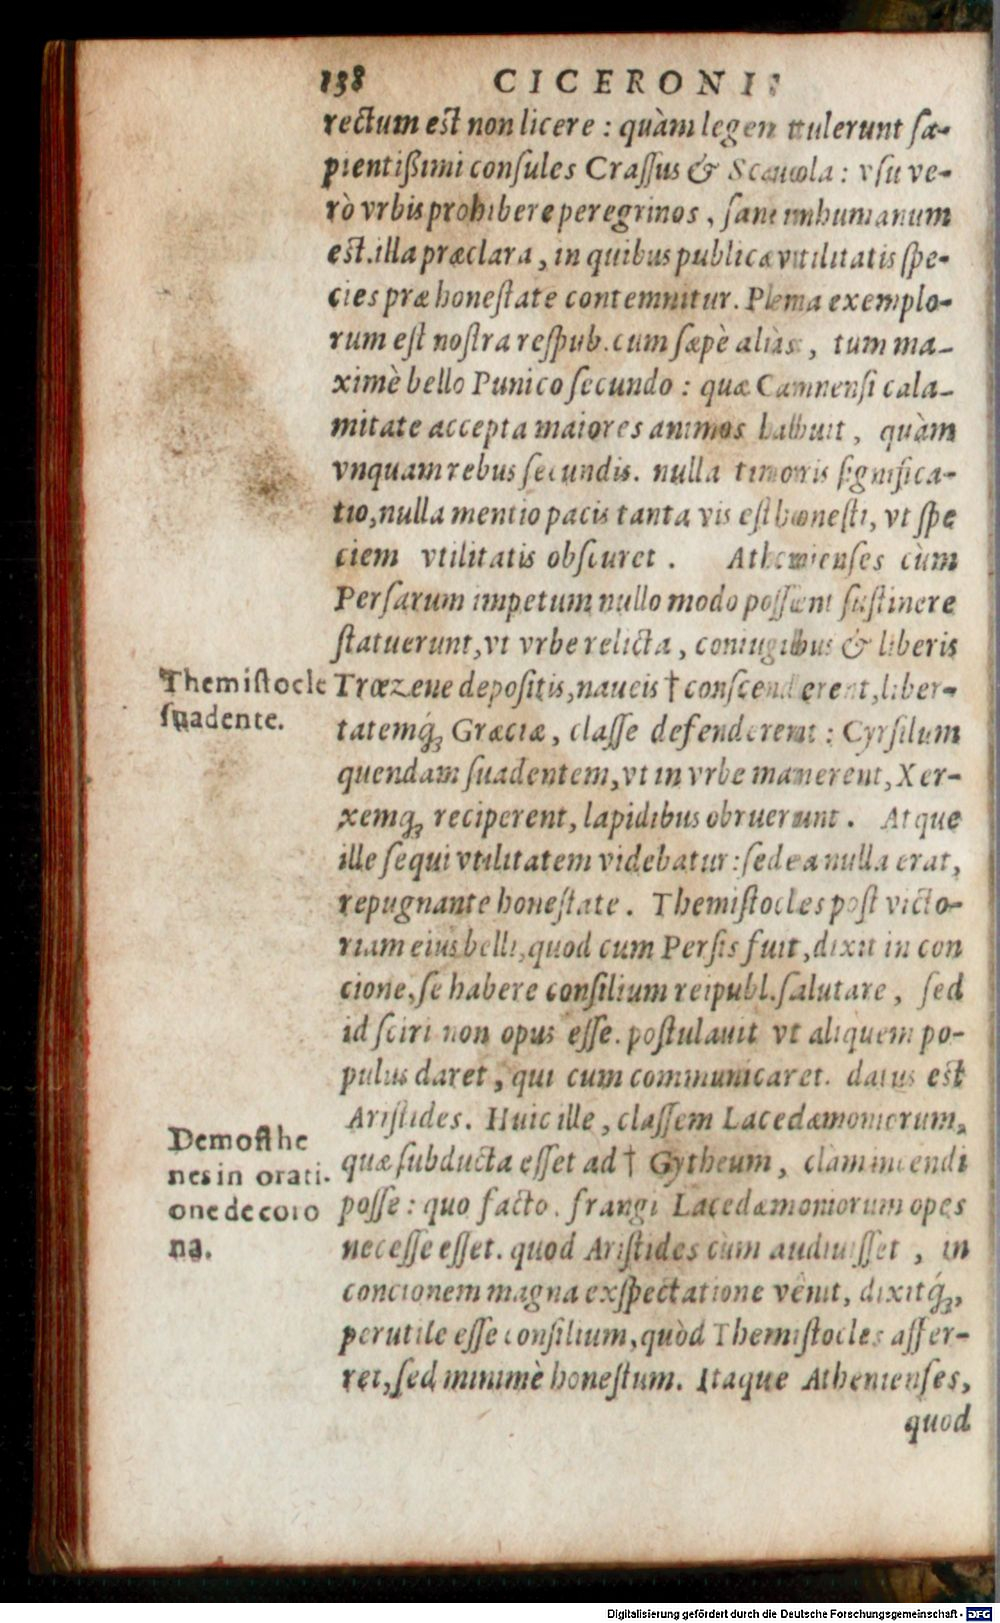 138 CICERONIS
rectum est non licere : quàm legem tulerunt sa-
pientißimi consules Crassus & Scæuola : vsu ve-
rò vrbis prohibere peregrinos , sanè inhumanum
est. illa præclara , in quibus publicæ vtilitatis spe-
cies præ honestate contemnitur. Plena exemplo-
rum est nostra respub. cum sæpè aliàs , tum ma-
ximè bello Punico secundo : quæ Cannensi cala-
mitate accepta maiores animos habuit , quàm
vnquam rebus secundis. nulla timoris significa-
tio, nulla mentio pacis tanta vis est honesti, vt spe
ciem vtilitatis obscuret . Athenienses cùm
Persarum impetum nullo modo possent sustinere
statuerunt, vt vrbe relicta , coniugibus & liberis
Trœzene depositis, naueis † conscenderent, liber-
tatemq́ꝫ Græciæ , classe defenderent : Cyrsilum
quendam suadentem, vt in vrbe manerent, Xer-
xemqꝫ reciperent, lapidibus obruerunt . Atque
ille sequi vtilitatem videbatur : sed ea nulla erat,
repugnante honestate . Themistocles post victo-
riam eius belli, quod cum Persis fuit, dixit in con
cione, se habere consilium reipubl. salutare , sed
id sciri non opus esse. postulauit vt aliquem po-
pulus daret , qui cum communicaret. datus est
Aristides. Huic ille , classem Lacedæmoniorum,
quæ subducta esset ad † Gytheum , clam incendi
posse : quo facto . frangi Lacedæmoniorum opes
necesse esset. quod Aristides cùm audiuisset , in
concionem magna exspectatione venit, dixitq́ꝫ,
perutile esse consilium, quòd Themistocles affer-
ret, sed minimè honestum. Itaque Athenienses,
quod
Themistocle
suadente.
Demosthe
nes in orati-
one de coro
na.
Digitalisierung gefördert durch die Deutsche Forschungsgemeinschaft - DFG